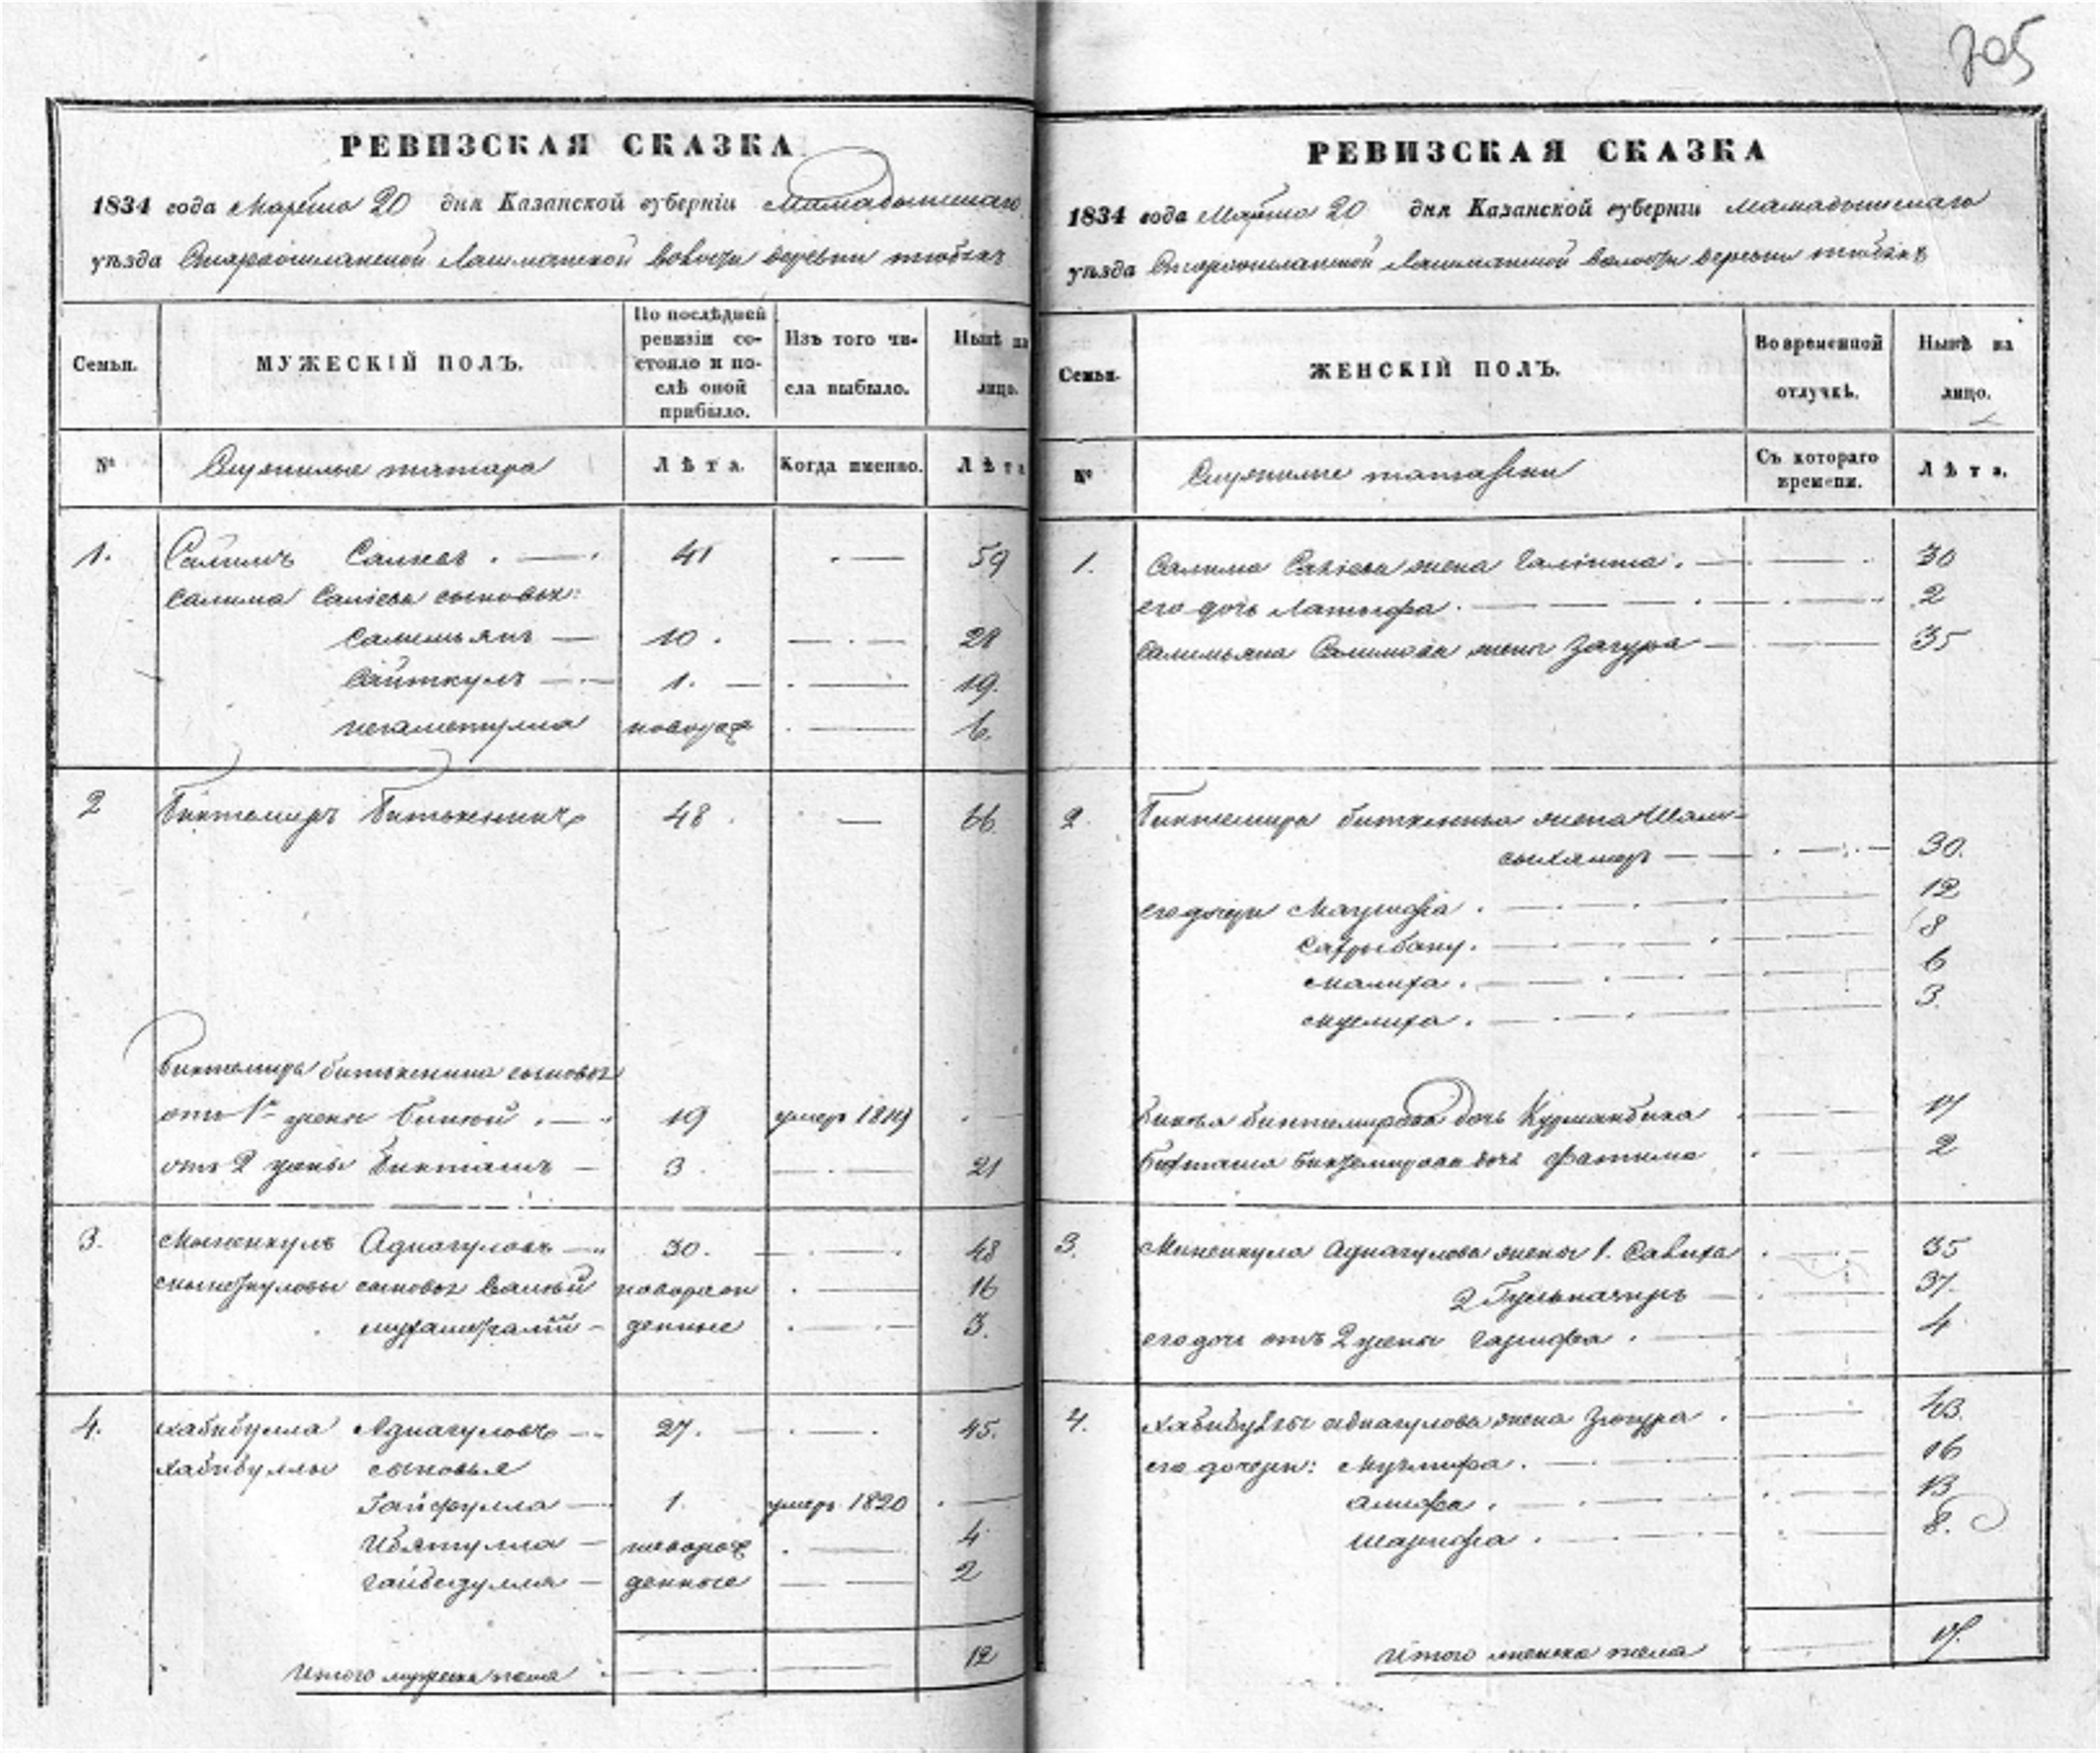 705
РЕВИЗСКАЯ СКАЗКА
1834 года Марта 20 дня Казанской губерніи Мамадышскаго
уѣзда Лашманской волости деревни
Семьи. МУЖЕСКІЙ ПОЛЪ. По послѣдней ревизіи состояло и послѣ оной прибыло. Изъ того числа выбыло. Нынѣ на лицо.
№ Служилые татара Лѣта. Когда именно. Лѣта
1. Салимъ Салиевъ . — 41 . — 59
Салима Салиева сыновья:
Салимьянъ — 10. — . — 28
Сайткулъ — 1. — . — 19.
Негаметулла новорож . — 6.
2 Биктемиръ 48. — 66.
Биктемира сыновья
отъ 1й жены Биккей . — 19 умеръ 1819 . —
отъ 2 жены Бикташъ — 3. — . — 21
3. Адналуловъ — 30. — . — . 48
сыновья Валий новорож . — 16
— денные . — 3.
4. Хабибулла Адналуловъ — 27. — . — . 45.
Хабибуллы сыновья
Гайфулла — 1. умеръ 1820 . —
Ибятулла — новорож . — 4
Гайбедулла — денные — — 2
Итого мужеска пола . — — 12
РЕВИЗСКАЯ СКАЗКА
1834 года Марта 20 дня Казанской губерніи Мамадышскаго
уѣзда Лашманской волости деревни
Семьи. ЖЕНСКІЙ ПОЛЪ. Во временной отлучкѣ. Нынѣ на лицо.
№ Служилые татарки Съ котораго времени. Лѣта.
1. Салима Салиева жена Галіима . — 30
его дочь Латыфа . — 2
Салимьяна Салимова жена Загура — 35
2. Биктемира жена Шам-
сыкамеръ — . — 30.
его дочери Магрифа . — 12
Сагрыбану . — 8
Малиха . — 6
Муслиха . — 3.
Биккея Биктемирова дочь Курманбика . 17
Бикташа Биктемирова дочь Фатима . 2
3. Адналулова жены 1. Салиха . — 35
2 — . — 37.
его дочь отъ 2 жены Гарифа . — 4
4. Хабибуллы Адналулова жена Зюгура . — 43.
его дочери: . — 16
Алифа . — 13
Шарифа . — 8.
Итого женска пола . — 17.